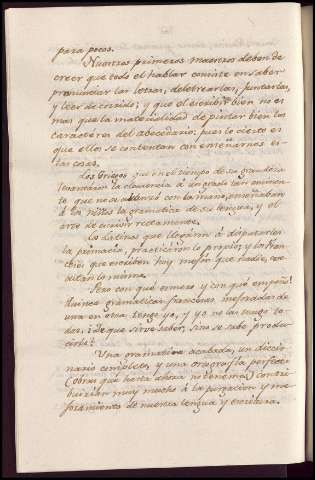 para pocos.
Nuestros primeros maestros deben de
creer que todo el hablar consiste en saber
pronunciar las letras, deletrearlas, juntarlas,
y leer de corrido; y que el escribir bien no es
mas que la materialidad de pintar bien los
caractéres del abecedario: pues lo cierto es
que ellos se contentan con enseñarnos es-
tas cosas.
Los Griegos que en el tiempo de su grandeza
levantaron la eloquencia à un grado tan eminente
que no se alcanzó con la mano, enseñaban
à los niños la gramatica de su lengua, y el
arte de escribir rectamente.
Los Latinos que llegáron à disputarles
la primacia, practicáron lo proprio; y los Fran-
ceses que escriben hoy mejor que nadie,
lo mismo.
Pero con qué esmero y con qué empeño!
Quince gramáticas francesas mejoradas de
una en otra tengo yo, y yo no las tengo to-
das. ¿De que sirve saber, sino se sabe produ-
cirlo?
Una gramatica acabada, un diccio-
nario completo, y una ortografía perfecta
(obras que hasta ahora no tenemos) contri-
buirían muy mucho à la purgacion y me-
joramiento de nuestra lengua y escritura.